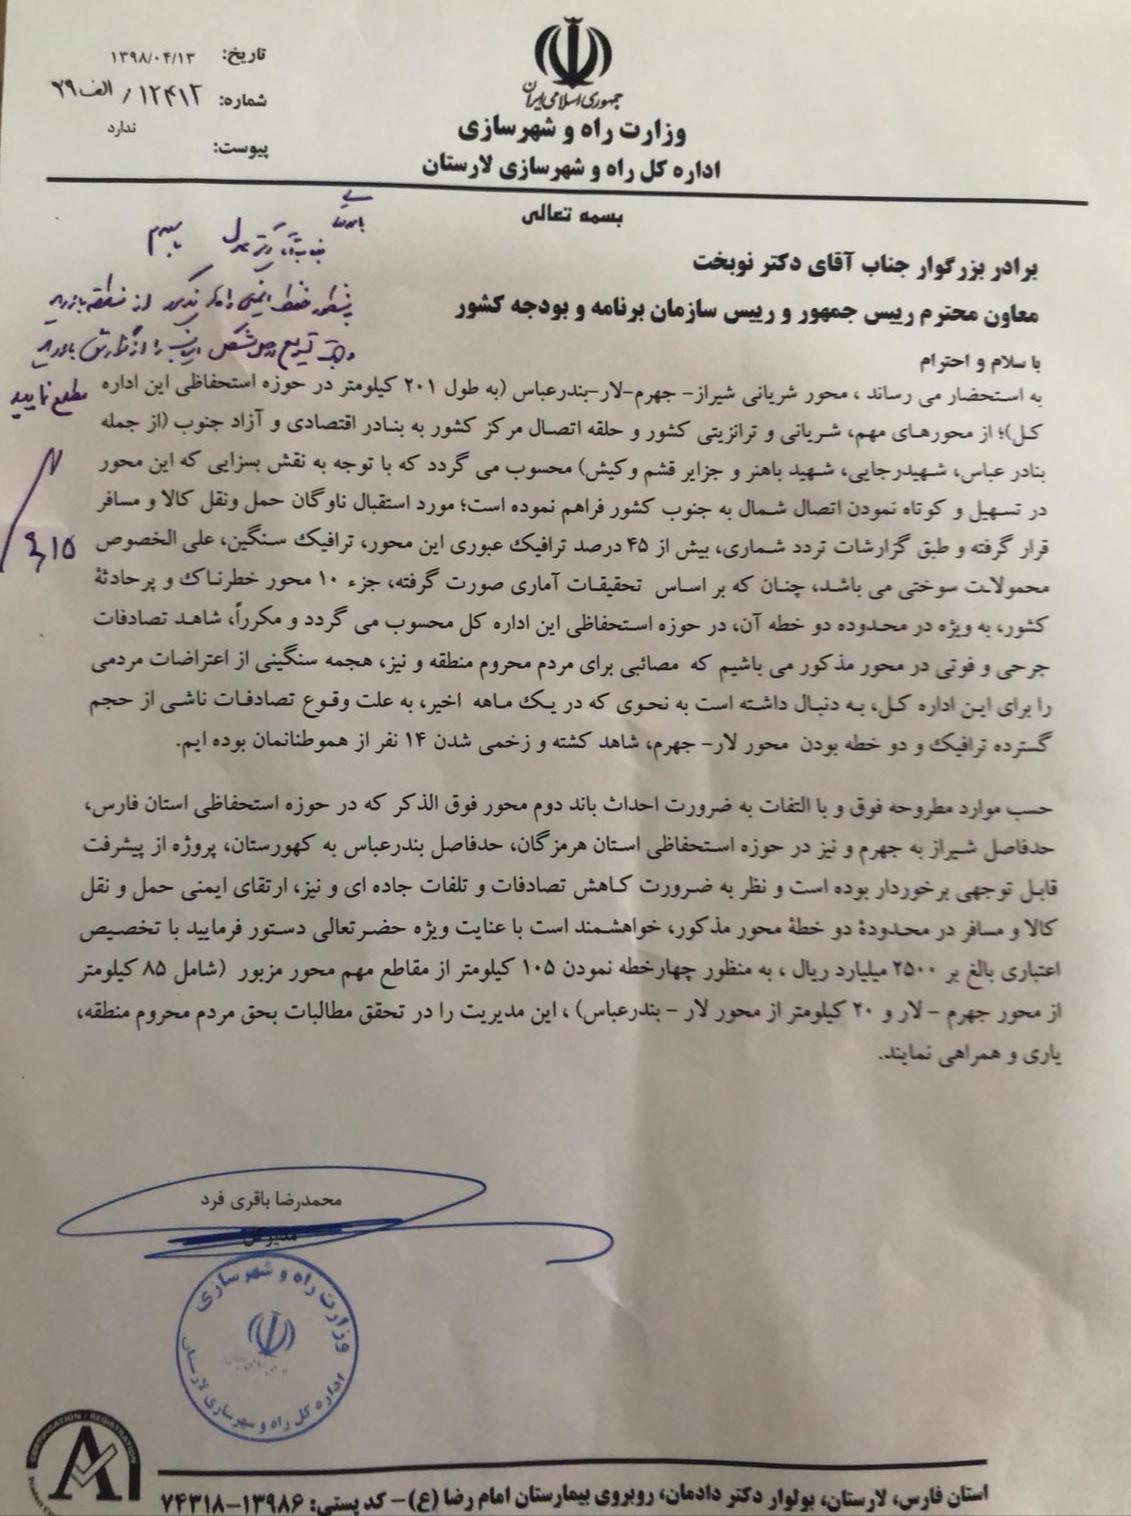 جمهوری اسلامی ایران
وزارت راه و شهرسازی
اداره کل راه و شهرسازی لارستان
تاریخ: ۱۳۹۸/۰۴/۱۳
شماره: ۱۲۴۱۲ / الف ۷۹
پیوست: ندارد
بسمه تعالی
برادر بزرگوار جناب آقای دکتر نوبخت
معاون محترم رییس جمهور و رییس سازمان برنامه و بودجه کشور
با سلام و احترام
به استحضار می رساند ، محور شریانی شیراز- جهرم-لار-بندرعباس (به طول ۲۰۱ کیلومتر در حوزه استحفاظی این اداره
کل)؛ از محورهای مهم، شریانی و ترانزیتی کشور و حلقه اتصال مرکز کشور به بنادر اقتصادی و آزاد جنوب (از جمله
بنادر عباس، شهیدرجایی، شهید باهنر و جزایر قشم وکیش) محسوب می گردد که با توجه به نقش بسزایی که این محور
در تسهیل و کوتاه نمودن اتصال شمال به جنوب کشور فراهم نموده است؛ مورد استقبال ناوگان حمل ونقل کالا و مسافر
قرار گرفته و طبق گزارشات تردد شماری، بیش از ۴۵ درصد ترافیک عبوری این محور، ترافیک سنگین، علی الخصوص
محمولات سوختی می باشد، چنان که بر اساس تحقیقات آماری صورت گرفته، جزء ۱۰ محور خطرناک و پرحادثهٔ
کشور، به ویژه در محدوده دو خطه آن، در حوزه استحفاظی این اداره کل محسوب می گردد و مکرراً، شاهد تصادفات
جرحی و فوتی در محور مذکور می باشیم که مصائبی برای مردم محروم منطقه و نیز، هجمه سنگینی از اعتراضات مردمی
را برای این اداره کل، به دنبال داشته است به نحوی که در یک ماهه اخیر، به علت وقوع تصادفات ناشی از حجم
گسترده ترافیک و دو خطه بودن محور لار- جهرم، شاهد کشته و زخمی شدن ۱۴ نفر از هموطنانمان بوده ایم.
حسب موارد مطروحه فوق و با التفات به ضرورت احداث باند دوم محور فوق الذکر که در حوزه استحفاظی استان فارس،
حدفاصل شیراز به جهرم و نیز در حوزه استحفاظی استان هرمزگان، حدفاصل بندرعباس به کهورستان، پروژه از پیشرفت
قابل توجهی برخوردار بوده است و نظر به ضرورت کاهش تصادفات و تلفات جاده ای و نیز، ارتقای ایمنی حمل و نقل
کالا و مسافر در محدودهٔ دو خطهٔ محور مذکور، خواهشمند است با عنایت ویژه حضرتعالی دستور فرمایید با تخصیص
اعتباری بالغ بر ۲۵۰۰ میلیارد ریال ، به منظور چهارخطه نمودن ۱۰۵ کیلومتر از مقاطع مهم محور مزبور (شامل ۸۵ کیلومتر
از محور جهرم - لار و ۲۰ کیلومتر از محور لار - بندرعباس) ، این مدیریت را در تحقق مطالبات بحق مردم محروم منطقه،
یاری و همراهی نمایند.
محمدرضا باقری فرد
مدیرکل
وزارت راه و شهرسازی
اداره کل راه و شهرسازی لارستان
استان فارس، لارستان، بولوار دکتر دادمان، روبروی بیمارستان امام رضا (ع)- کد پستی: ۱۳۹۸۶-۷۴۳۱۸